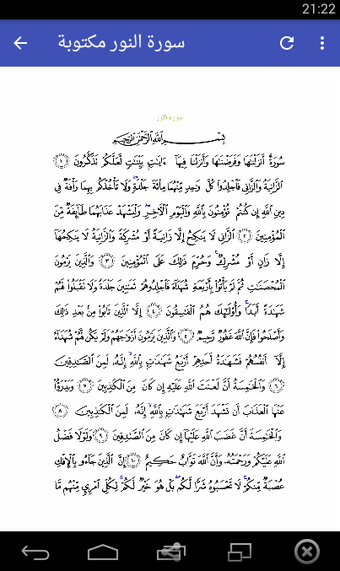 21:22
سورة النور مكتوبة
سورة النور
بِسْمِ اللَّهِ الرَّحْمَٰنِ الرَّحِيمِ
سُورَةٌ أَنزَلْنَاهَا وَفَرَضْنَاهَا وَأَنزَلْنَا فِيهَا ءَايَاتٍ بَيِّنَاتٍ لَّعَلَّكُمْ تَذَكَّرُونَ ١
الزَّانِيَةُ وَالزَّانِي فَاجْلِدُوا كُلَّ وَاحِدٍ مِّنْهُمَا مِائَةَ جَلْدَةٍ وَلَا تَأْخُذْكُم بِهِمَا رَأْفَةٌ فِي
دِينِ اللَّهِ إِن كُنتُمْ تُؤْمِنُونَ بِاللَّهِ وَالْيَوْمِ الْآخِرِ وَلْيَشْهَدْ عَذَابَهُمَا طَائِفَةٌ مِّنَ
الْمُؤْمِنِينَ ٢ الزَّانِي لَا يَنكِحُ إِلَّا زَانِيَةً أَوْ مُشْرِكَةً وَالزَّانِيَةُ لَا يَنكِحُهَا
إِلَّا زَانٍ أَوْ مُشْرِكٌ وَحُرِّمَ ذَٰلِكَ عَلَى الْمُؤْمِنِينَ ٣ وَالَّذِينَ يَرْمُونَ
الْمُحْصَنَاتِ ثُمَّ لَمْ يَأْتُوا بِأَرْبَعَةِ شُهَدَاءَ فَاجْلِدُوهُمْ ثَمَانِينَ جَلْدَةً وَلَا تَقْبَلُوا لَهُمْ
شَهَادَةً أَبَدًا وَأُولَٰئِكَ هُمُ الْفَاسِقُونَ ٤ إِلَّا الَّذِينَ تَابُوا مِن بَعْدِ ذَٰلِكَ
وَأَصْلَحُوا فَإِنَّ اللَّهَ غَفُورٌ رَّحِيمٌ ٥ وَالَّذِينَ يَرْمُونَ أَزْوَاجَهُمْ وَلَمْ يَكُن لَّهُمْ شُهَدَاءُ
إِلَّا أَنفُسُهُمْ فَشَهَادَةُ أَحَدِهِمْ أَرْبَعُ شَهَادَاتٍ بِاللَّهِ إِنَّهُ لَمِنَ الصَّادِقِينَ
٦ وَالْخَامِسَةُ أَنَّ لَعْنَتَ اللَّهِ عَلَيْهِ إِن كَانَ مِنَ الْكَاذِبِينَ ٧ وَيَدْرَؤُا
عَنْهَا الْعَذَابَ أَن تَشْهَدَ أَرْبَعَ شَهَادَاتٍ بِاللَّهِ إِنَّهُ لَمِنَ الْكَاذِبِينَ ٨
وَالْخَامِسَةَ أَنَّ غَضَبَ اللَّهِ عَلَيْهَا إِن كَانَ مِنَ الصَّادِقِينَ ٩ وَلَوْلَا فَضْلُ
اللَّهِ عَلَيْكُمْ وَرَحْمَتُهُ وَأَنَّ اللَّهَ تَوَّابٌ حَكِيمٌ ١٠ إِنَّ الَّذِينَ جَاءُو بِالْإِفْكِ
عُصْبَةٌ مِّنكُمْ لَا تَحْسَبُوهُ شَرًّا لَّكُم بَلْ هُوَ خَيْرٌ لَّكُمْ لِكُلِّ امْرِئٍ مِّنْهُم مَّا